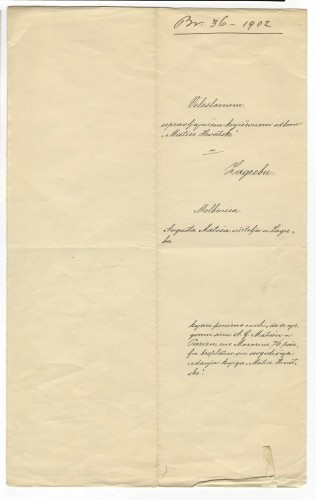 Br. 36 - 1902
Veleslavnom
upravljajućem književnom odboru
"Matice Hrvatske"
u
Zagrebu
Molbenica
Augusta Matoša učitelja u Zagre-
bu
kojom ponizno moli, da se nje-
govom sinu A. G. Matošu u
Parizu, rue Mazarine 76 poša-
lju besplatno sva ovogodišnja
izdanja knjiga "Matice Hrvat-
ske".